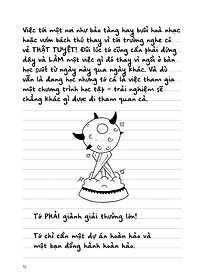 Việc tới một nơi như bảo tàng hay buổi hoà nhạc
hoặc vườn bách thú thay vì tới trường nghe có
vẻ THẬT TUYỆT! Đôi lúc tớ cũng cần phải đứng
dậy và LÀM một việc gì đó thay vì ngồi ở bàn
học suốt từ ngày này qua ngày khác. Và dù
vẫn là đang học nhưng tớ cá là việc tham gia
một chương trình học tập - trải nghiệm sẽ
chẳng khác gì được đi tham quan cả.
Tớ PHẢI giành giải thưởng lớn!
Tớ chỉ cần một dự án hoàn hảo và
một bạn đồng hành hoàn hảo.